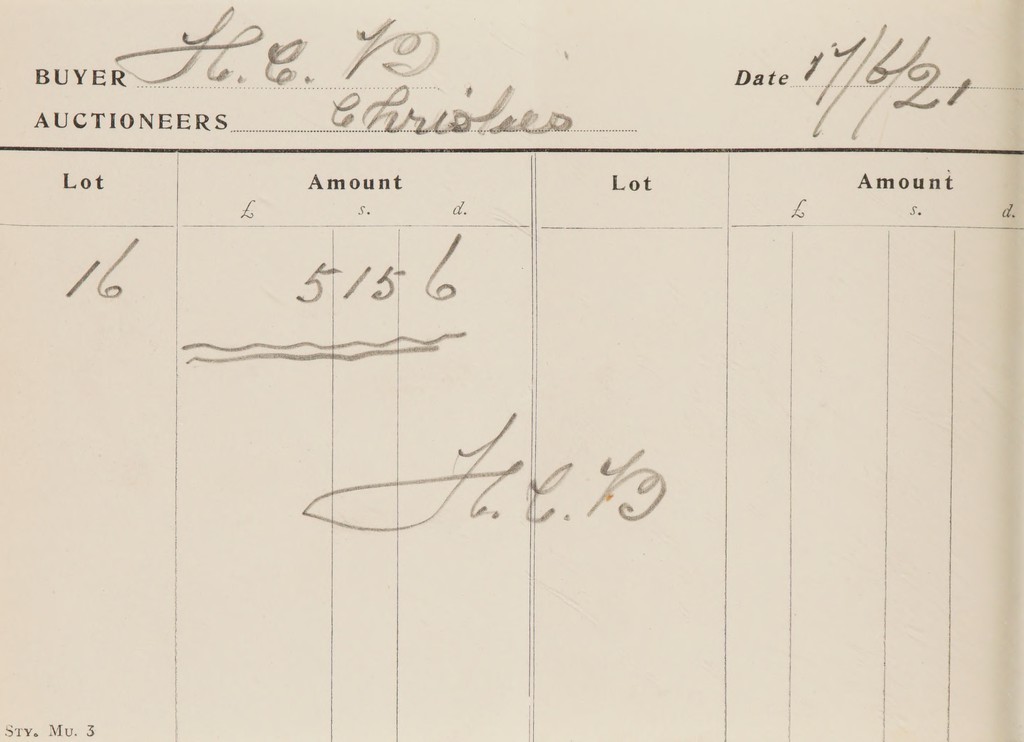 BUYER H. C. B Date 17/6/21.
AUCTIONEERS Christies
Lot Amount Lot Amount
£ s. d. £ s. d.
16 5 15 6
H. C. B
STY. MU. 3